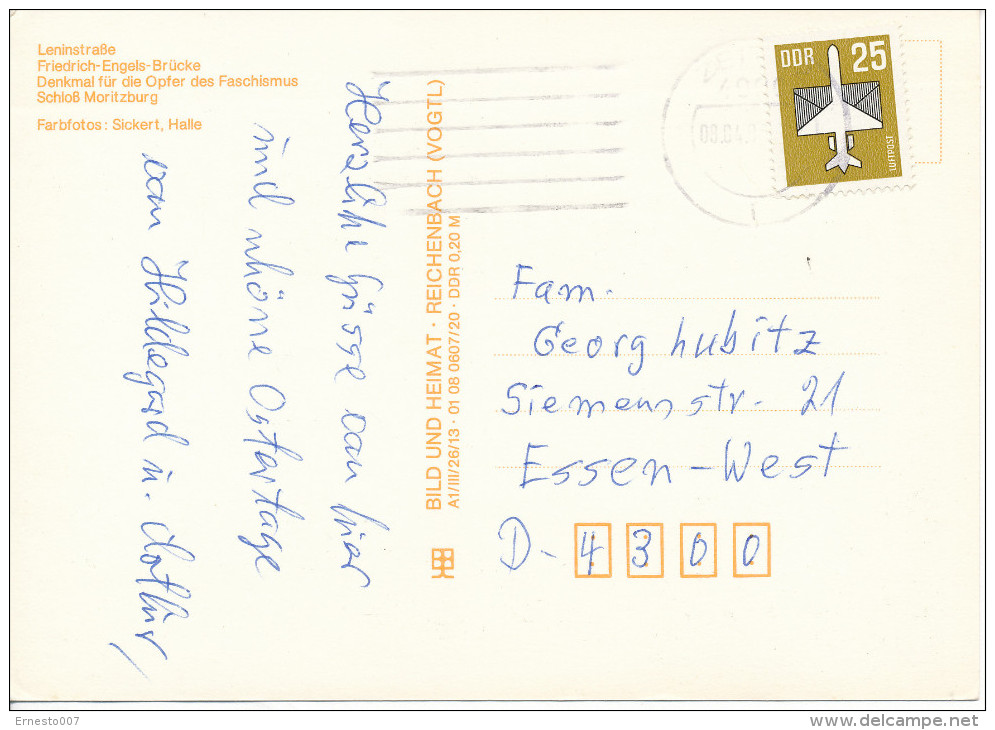 Leninstraße
Friedrich-Engels-Brücke
Denkmal für die Opfer des Faschismus
Schloß Moritzburg
Farbfotos: Sickert, Halle
Herzliche Grüsse von hier
und schöne Ostertage
von Hildegard u. Lothar
BILD UND HEIMAT · REICHENBACH (VOGTL)
A1/III/26/13 · 01 08 0607/20 · DDR 0,20 M
DDR 25
LUFTPOST
Fam.
Georg Hubitz
Siemensstr. 21
Essen-West
D-4300
Ernesto007
www.delcampe.net